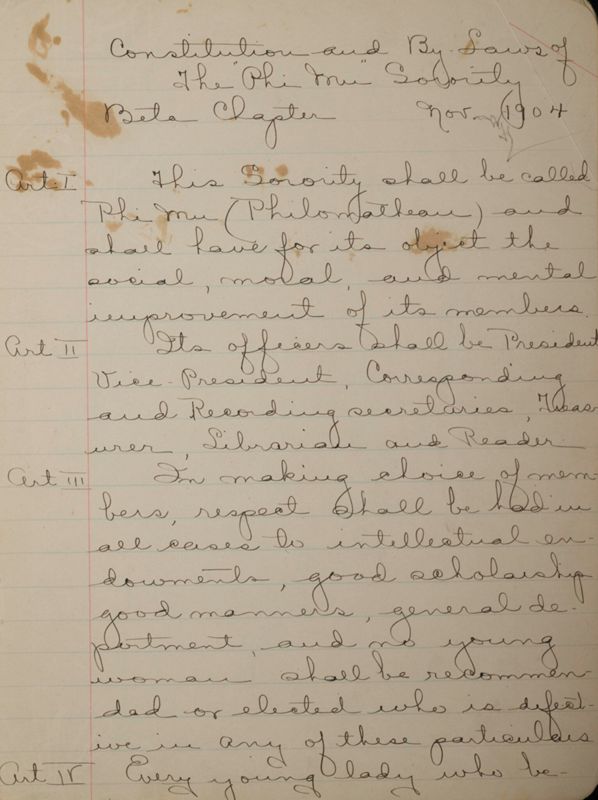 Constitution and By-Laws of
The "Phi Mu" Sorority
Beta Chapter Nov. 1904
Art. I This Sorority shall be called
Phi Mu (Philomathean) and
shall have for its object the
social, moral, and mental
improvement of its members.
Art II Its officers shall be President
Vice-President, Corresponding
and Recording secretaries, Treas-
urer, Librarian and Reader
Art III In making choice of mem-
bers, respect shall be had in
all cases to intellectual en-
dowments, good scholarship
good manners, general de-
portment, and no young
woman shall be recommen-
dad or elected who is defect-
ive in any of these particulars
Art IV Every young lady who be-